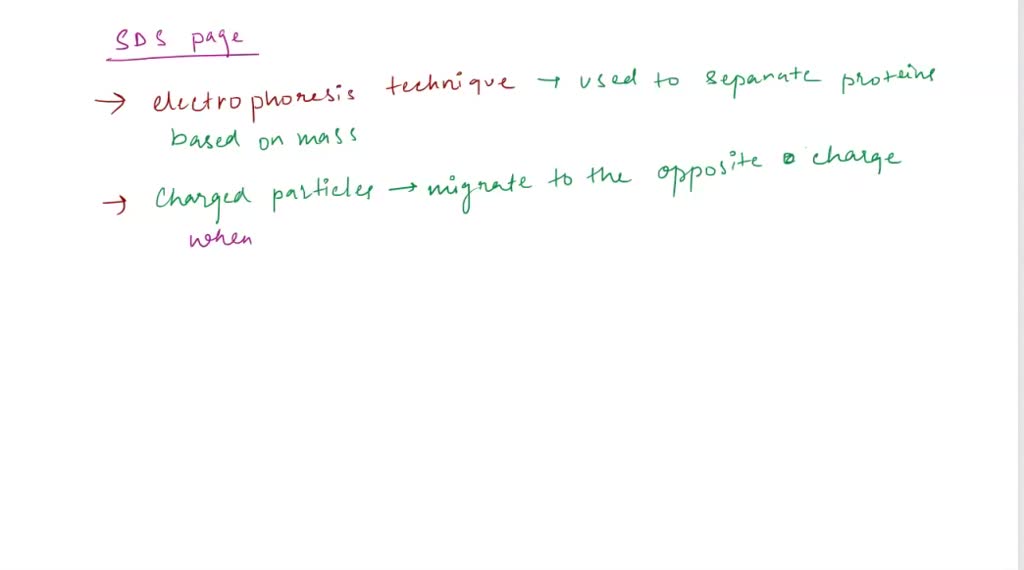 SDS page
→ electrophoresis technique → used to separate proteins
based on mass
→ Charged particles → migrate to the opposite charge
when